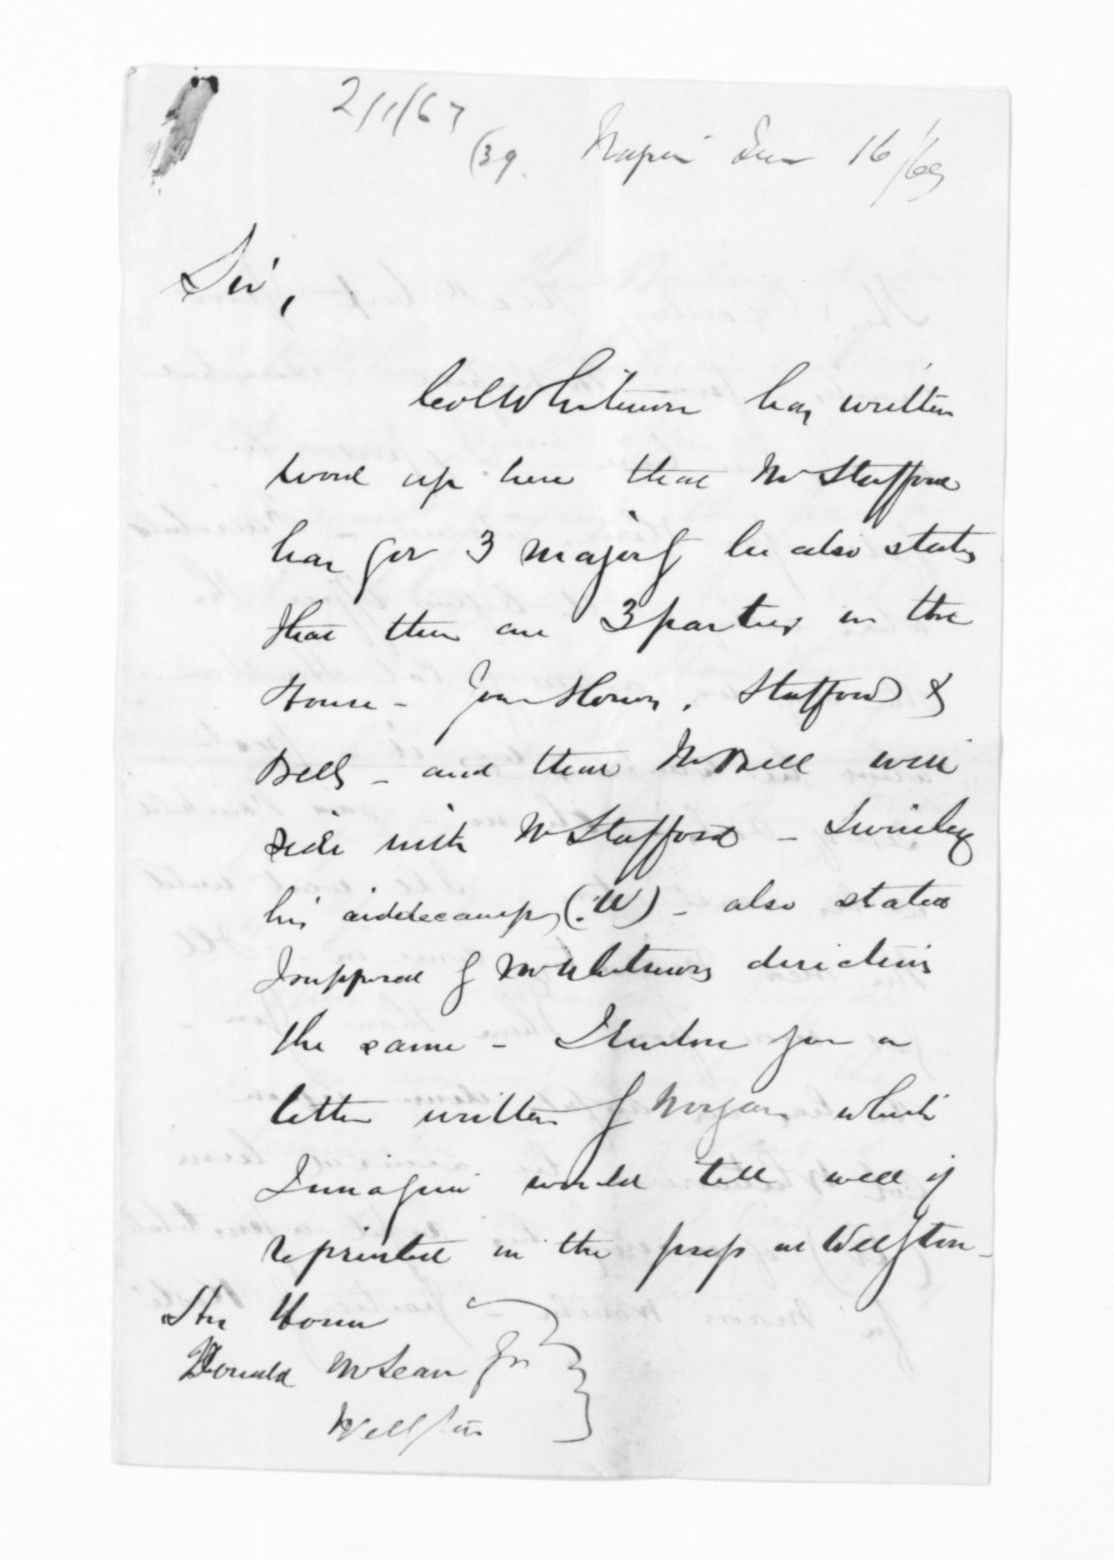 2/1/67
(39. Napier June 16/69
Sir,
Col Whitmore has written
word up here that Mr Stafford
has got 3 majory he also states
that there are 3 parties in the
House - your Honor, Stafford &
Bells - and that Mr Bell will
side with Mr Stafford -
his aidedecamp (:W) - also states
I suppose by Mr Whitmores directions
the same - I enclose you a
letter written by Morgan which
I imagine would tell well if
reprinted in the press at Wellgton -
His Honor
Donald McLean Jn
Wellgton